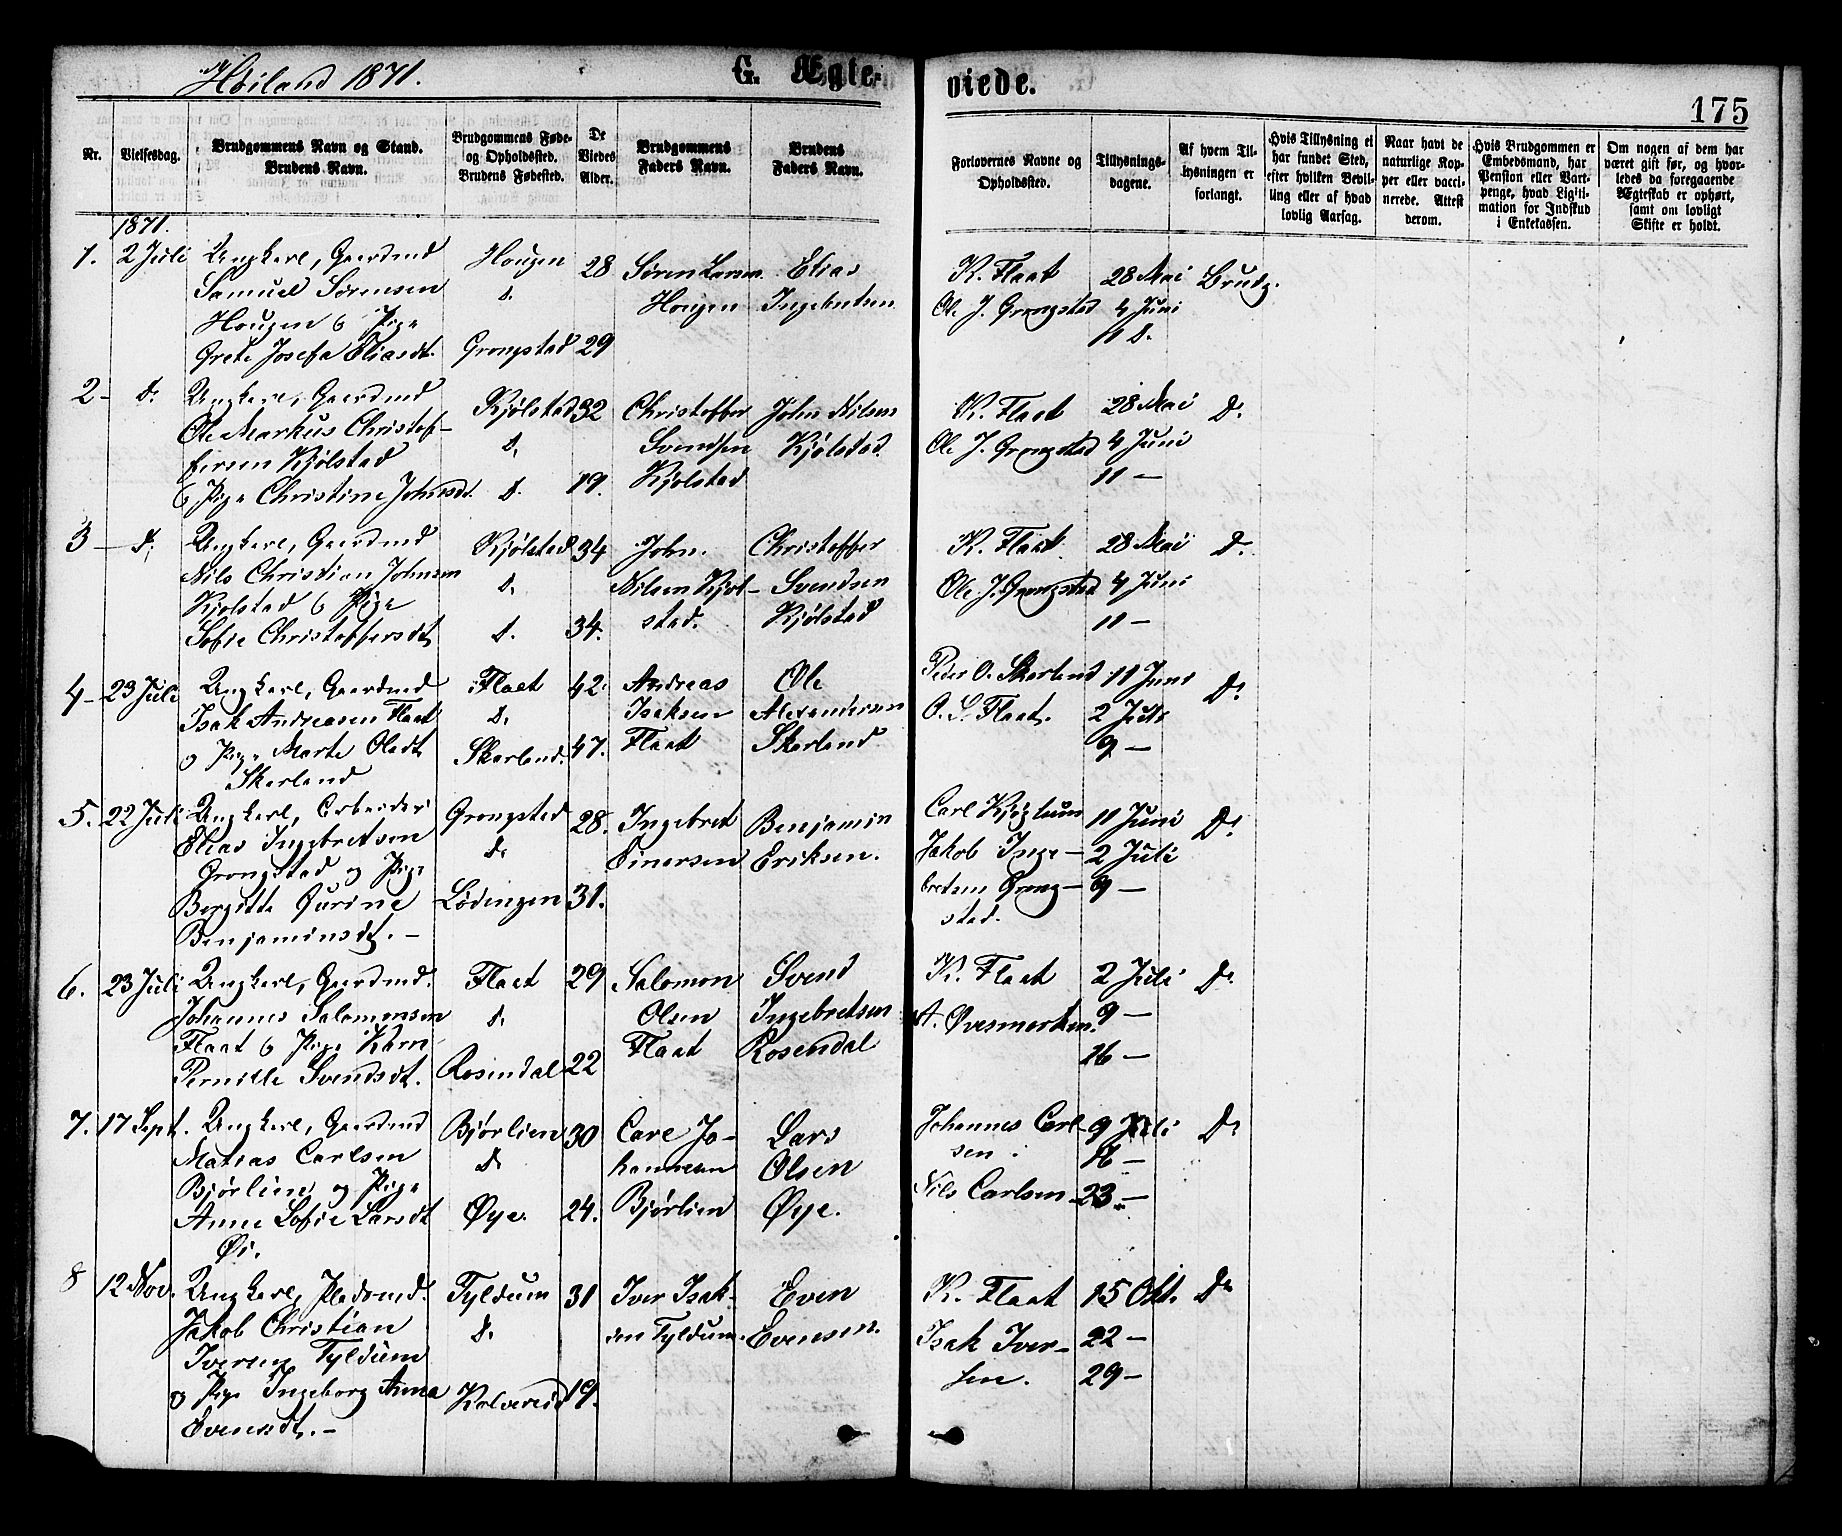 Høiland 1871.
G. Ægte-
viede.
175
Nr.
Vielsesdag.
Brudgommens Navn og Stand.
Brudens Navn.
Brudgommens Føde-
og Opholdssted.
Brudens Fødested.
De
Viedes
Alder.
Brudgommens
Faders Navn.
Brudens
Faders Navn.
Forlovernes Navne og
Opholdssted.
Tillysnings-
dagene.
Af hvem Til-
lysningen er
forlangt.
Hvis Tillysning ei
har fundet Sted,
efter hvilken Bevil-
ling eller af hvad
lovlig Aarsag.
Naar havt de
naturlige Kop-
per eller vacci-
nerede. Attest
derom.
Hvis Brudgommen er
Embedsmand, har
Pension eller Vart-
penge, hvad Ligiti-
mation for Indskud
i Enkekassen.
Om nogen af dem har
været gift før, og hvor-
ledes da foregaaende
Ægteskab er ophørt,
samt om lovligt
Skifte er holdt.
1871.
1. 2 Juli Ungkarl, Gaardmd Hougen 28 Søren Larsen Elias K. Flaat 28 Mai Brudg.
Samuel Sørensen D. Hougen Ingebretsen Ole J. Grongstad 4 Juni
Hougen & Pige 11 D.
Grete Josefa Eliasdt. Grongstad 29
2 - D. Ungkarl, Gaardmd Kjølstad 32 Christoffer John Nilsen K. Flaat 28 Mai D.
Ole Markus Christof- D. Svendsen Kjølstad Ole J. Grongstad 4 Juni
fersen Kjølstad Kjølstad 11 -
& Pige Christine Johnsdt. D. 19.
3 - D. Ungkarl, Gaardmd Kjølstad 34 John Christoffer K. Flaat 28 Mai D.
Nils Christian Johnsen D. Nilsen Kjøl- Svendsen Ole J. Grongstad 4 Juni
Kjølstad & Pige stad. Kjølstad 11 -
Sofie Christoffersdt. D. 34.
4 - 23 Juli Ungkarl, Gaardmd Flaat 42. Andreas Ole Peder O. Skarland 11 Juni D.
Isak Andreasen Flaat D. Isaksen Alexandersen O. S. Flaat. 2 Juli
og Pige Marte Olsdt. Skarland. 47. Flaat Skarland 9 -
Skarland
5. 22 Juli Ungkarl, Arbeider Grongstad 28. Ingebret Benjamin Carl 11 Juni D.
Elias Ingebretsen D. Einersen Eriksen. Jakob Inge- 2 Juli
Grongstad og Pige bretsen Grong- 9 -
Bergitte Gurine Lødingen 31. stad.
Benjaminsdt. -
6. 23 Juli Ungkarl, Gaardmd. Flaat 29 Salomon Svend K. Flaat 2 Juli D.
Johannes Salomonsen D. Olsen Ingebretsen A. Øvesmarken. 9 -
Flaat & Pige Karn Flaat Rosendal 16 -
Pernille Svendsdt. Rosendal 22
7. 17 Sept. Ungkarl, Gaardmd Bjørlien 30 Carl Jo- Lars Johannes Carl- 9 Juli D.
Matias Carlsen D. hannesen Olsen sen. 16 -
Bjørlien og Pige Bjørlien Øye. Nils Carlsen 23 -
Anne Sofie Larsdt Øye. 24.
Øi.
8 12 Nov. Ungkarl, Pladsmd. Tyldum 31 Iver Isak- Even K. Flaat 15 Okt. D.
Jakob Christian D. sen Tyldum. Evensen. Isak Iver- 22 -
Iversen Tyldum sen. 29 -
og Pige Ingeborg Anna Kolvereid 19.
Evensdt. -